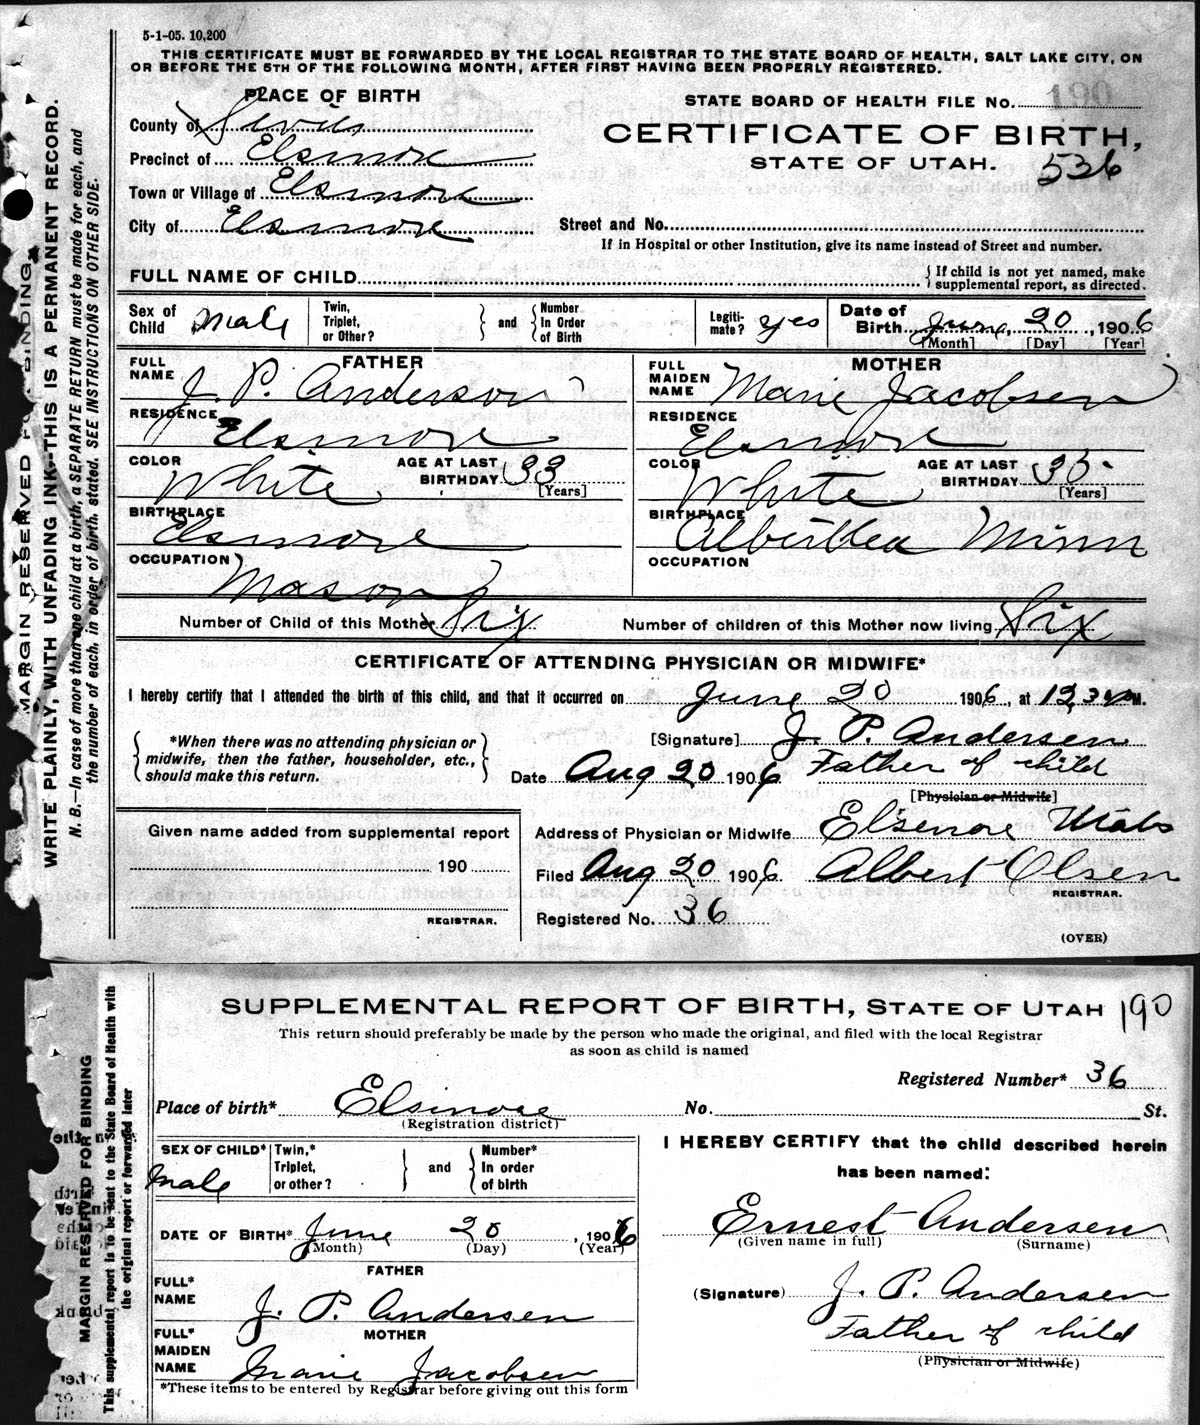 5-1-05. 10,200
THIS CERTIFICATE MUST BE FORWARDED BY THE LOCAL REGISTRAR TO THE STATE BOARD OF HEALTH, SALT LAKE CITY, ON
OR BEFORE THE 5TH OF THE FOLLOWING MONTH, AFTER FIRST HAVING BEEN PROPERLY REGISTERED.
PLACE OF BIRTH
STATE BOARD OF HEALTH FILE No. 190
County of Sevier
CERTIFICATE OF BIRTH,
Precinct of Elsinore
STATE OF UTAH. 536
Town or Village of Elsinore
City of Elsinore
Street and No.
If in Hospital or other Institution, give its name instead of Street and number.
FULL NAME OF CHILD
{ If child is not yet named, make supplemental report, as directed.
Sex of Child Male Twin, Triplet, or Other? } and { Number In Order of Birth Legiti-mate? yes Date of Birth June 20, 1906
[Month] [Day] [Year]
FATHER
FULL NAME J. P. Anderson
RESIDENCE Elsinore
COLOR White AGE AT LAST BIRTHDAY 33
[Years]
BIRTHPLACE Elsinore
OCCUPATION Mason
MOTHER
FULL MAIDEN NAME Marie Jacobsen
RESIDENCE Elsinore
COLOR White AGE AT LAST BIRTHDAY 35
[Years]
BIRTHPLACE Albertlea Minn
OCCUPATION
Number of Child of this Mother Six Number of children of this Mother now living Six
CERTIFICATE OF ATTENDING PHYSICIAN OR MIDWIFE*
I hereby certify that I attended the birth of this child, and that it occurred on June 20 1906, at 12,30 M.
{ *When there was no attending physician or midwife, then the father, householder, etc., should make this return. }
[Signature] J. P. Andersen
Date Aug 20 1906 Father of child
[Physician or Midwife]
Given name added from supplemental report
190
REGISTRAR.
Address of Physician or Midwife Elsenore Utah
Filed Aug 20 1906 Albert Olsen
REGISTRAR.
Registered No. 36
(OVER)
MARGIN RESERVED FOR BINDING.
WRITE PLAINLY, WITH UNFADING INK--THIS IS A PERMANENT RECORD.
N. B.—In case of more than one child at a birth, a SEPARATE RETURN must be made for each, and
the number of each, in order of birth, stated. SEE INSTRUCTIONS ON OTHER SIDE.
SUPPLEMENTAL REPORT OF BIRTH, STATE OF UTAH 190
This return should preferably be made by the person who made the original, and filed with the local Registrar
as soon as child is named
Registered Number* 36
Place of birth* Elsinore No. St.
(Registration district)
SEX OF CHILD* Male Twin,* Triplet, or other? } and { Number* In order of birth
DATE OF BIRTH* June 20, 1906
(Month) (Day) (Year)
FATHER
FULL* NAME J. P. Andersen
MOTHER
FULL* MAIDEN NAME Marie Jacobsen
*These items to be entered by Registrar before giving out this form
I HEREBY CERTIFY that the child described herein
has been named:
Ernest Andersen
(Given name in full) (Surname)
(Signature) J. P. Andersen
Father of child
(Physician or Midwife)
MARGIN RESERVED FOR BINDING
This supplemental report is to be sent to the State Board of Health with
the original report or forwarded later